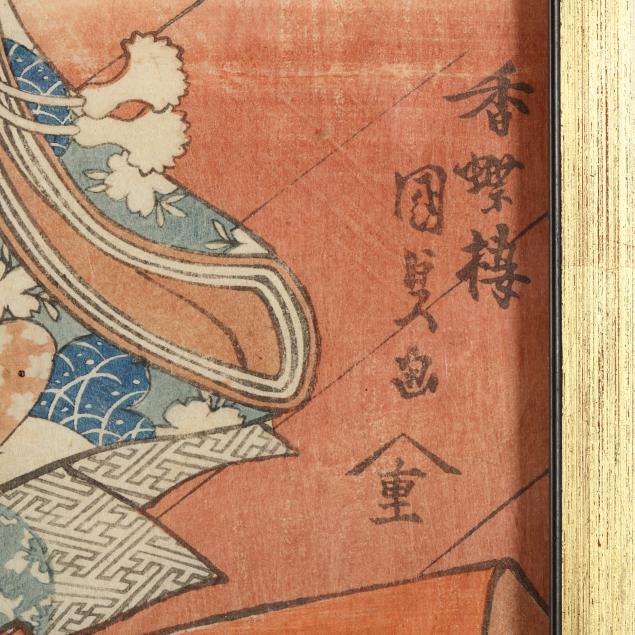 香蝶楼
国貞画
重